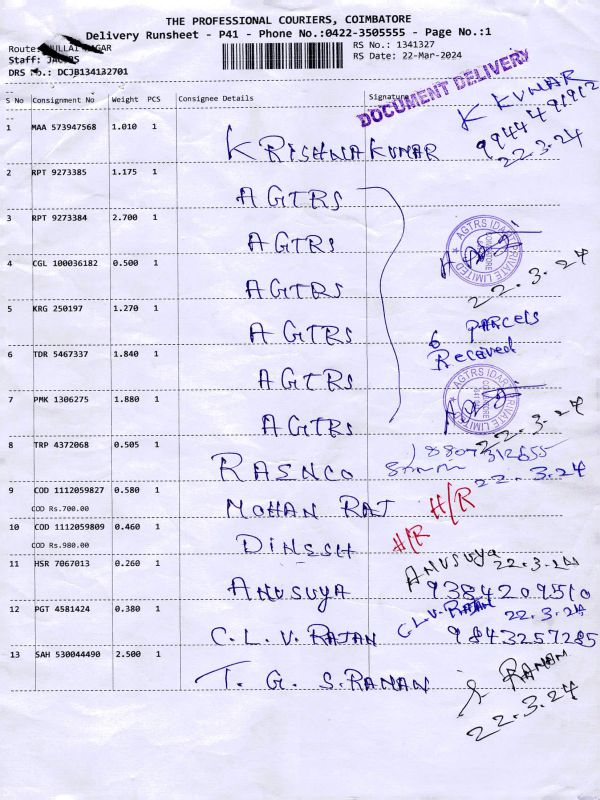 THE PROFESSIONAL COURIERS, COIMBATORE
Delivery Runsheet - P41 - Phone No.:0422-3505555 - Page No.:1
Route: NAGAR
RS No.: 1341327
Staff:
RS Date: 22-Mar-2024
DRS No.: DCJB134132701
DOCUMENT DELIVERY
S No Consignment No Weight PCS Consignee Details Signature
K KUMAR
9944491912
22.3.24
1 MAA 573947568 1.010 1 KRISHNAKUMAR
2 RPT 9273385 1.175 1 AGTRS
3 RPT 9273384 2.700 1 AGTRS
AGTRS IDAPL PRIVATE LIMITED
COIMBATORE
22.3.24
4 CGL 100036182 0.500 1 AGTRS
5 KRG 250197 1.270 1 AGTRS
6 PARCELS
Received
6 TDR 5467337 1.840 1 AGTRS
7 PMK 1306275 1.880 1 AGTRS
AGTRS IDAPL PRIVATE LIMITED
22.3.24
8 TRP 4372068 0.505 1 RAENCO
22.3.24
9 COD 1112059827 0.580 1 MOHAN RAJ H/R
COD Rs.700.00
10 COD 1112059809 0.460 1 DINESH H/R
COD Rs.980.00
11 HSR 7067013 0.260 1 ANUSUYA
ANUSUYA 22.3.24
9384209510
12 PGT 4581424 0.380 1 C.L.V.RAJAN
C.L.V.RAJAN 22.3.24
9843257285
13 SAH 530044490 2.500 1 T.G S.RAMAN
S RAMAN
22.3.24